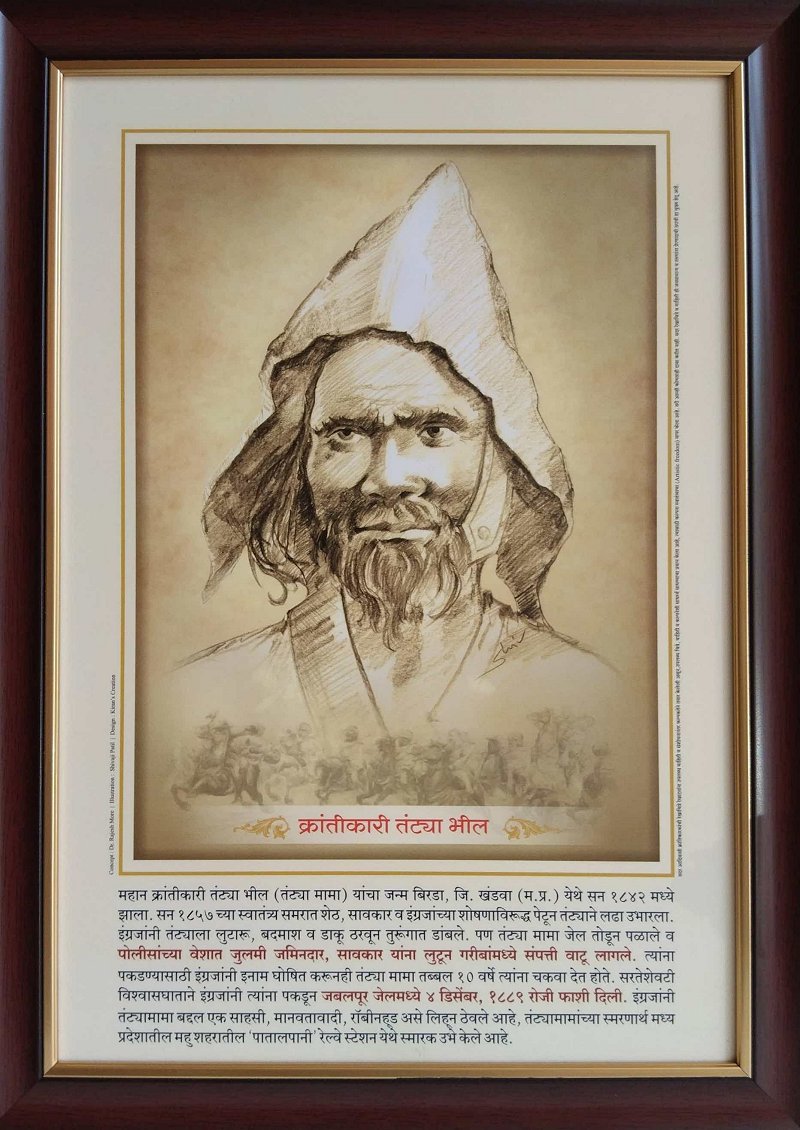 क्रांतीकारी तंट्या भील
महान क्रांतीकारी तंट्या भील (तंट्या मामा) यांचा जन्म बिरडा, जि. खंडवा (म.प्र.) येथे सन १८४२ मध्ये
झाला. सन १८५७ च्या स्वातंत्र्य समरात शेठ, सावकार व इंग्रजांच्या शोषणाविरूद्ध पेटून तंट्याने लढा उभारला.
इंग्रजांनी तंट्याला लुटारू, बदमाश व डाकू ठरवून तुरूंगात डांबले. पण तंट्या मामा जेल तोडून पळाले व
पोलीसांच्या वेशात जुलमी जमिनदार, सावकार यांना लुटून गरीबांमध्ये संपत्ती वाटू लागले. त्यांना
पकडण्यासाठी इंग्रजांनी इनाम घोषित करूनही तंट्या मामा तब्बल १० वर्षे त्यांना चकवा देत होते. सरतेशेवटी
विश्वासघाताने इंग्रजांनी त्यांना पकडून जबलपूर जेलमध्ये ४ डिसेंबर, १८८९ रोजी फाशी दिली. इंग्रजांनी
तंट्यामामा बद्दल एक साहसी, मानवतावादी, रॉबीनहूड असे लिहून ठेवले आहे, तंट्यामामांच्या स्मरणार्थ मध्य
प्रदेशातील महु शहरातील 'पातालपानी' रेल्वे स्टेशन येथे स्मारक उभे केले आहे.
Concept : Dr. Rajesh More | Illustration : Shivaji Patil | Design : Kiran's Creation